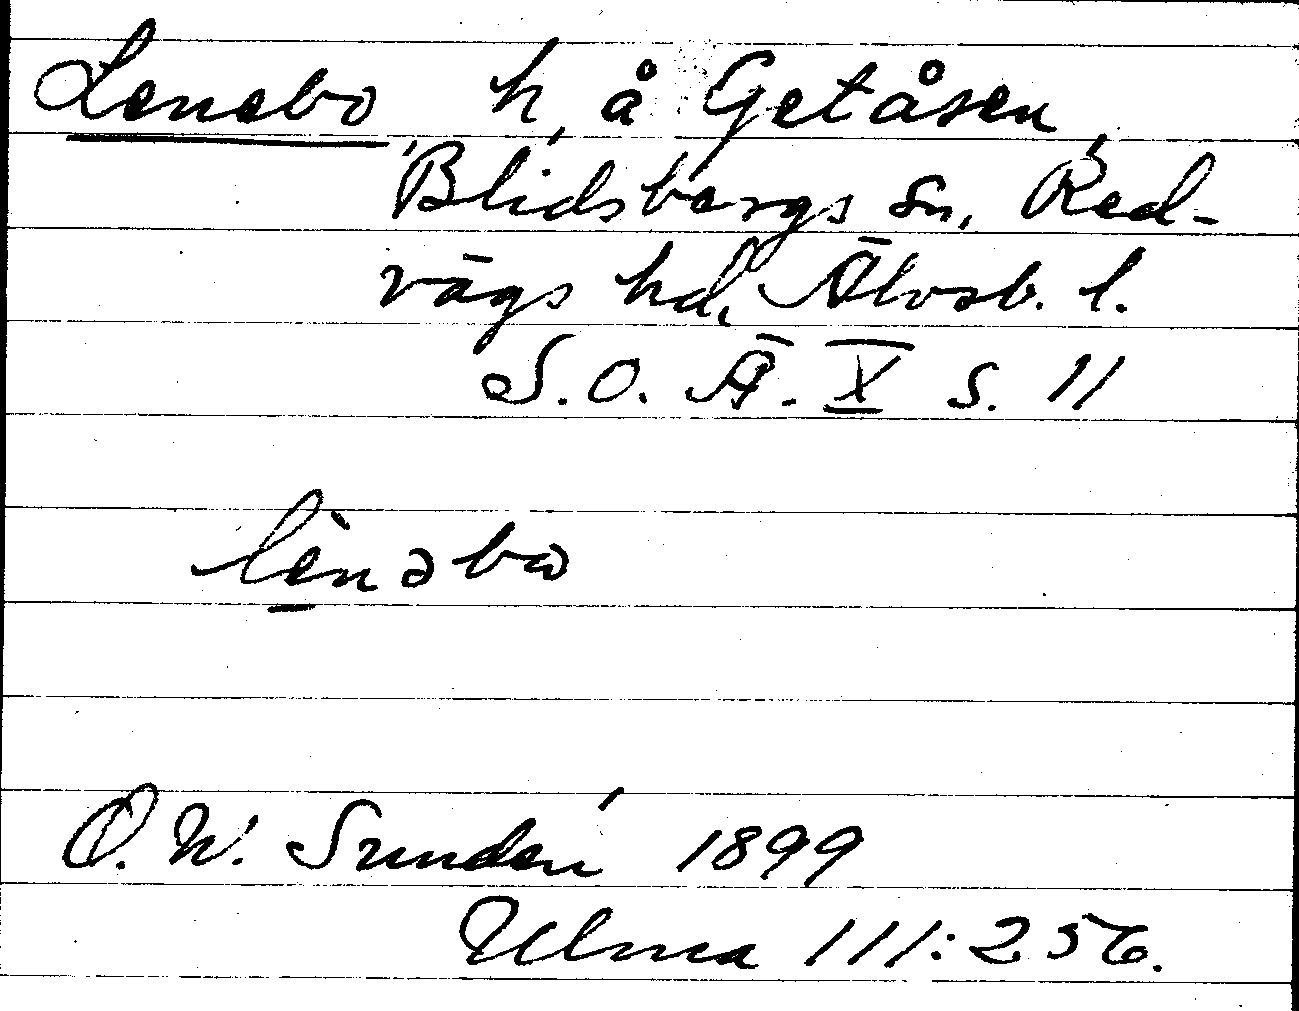 Lenebo, h, å Getåsen,
Blidsbergs sn, Red-
vägs hd, Älvsb. l.
S.O. Ä. X s. 11
lènəbω
O. W. Sundén 1899
Ulma 111:256.